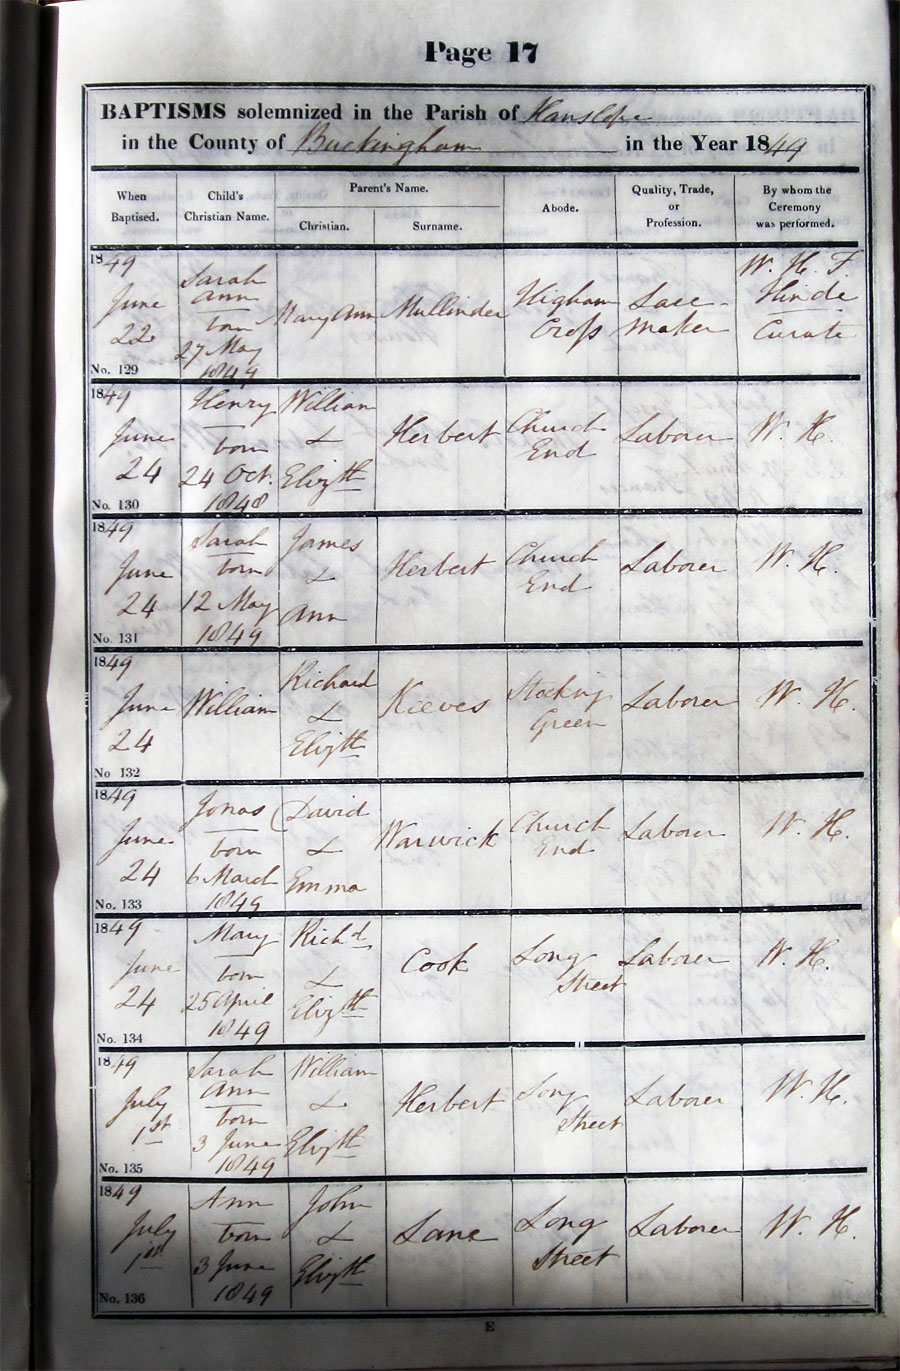 Page 17
BAPTISMS solemnized in the Parish of Hanslope
in the County of Buckingham in the Year 1849
When Baptised.
Child's Christian Name.
Parent's Name.
Christian.
Surname.
Abode.
Quality, Trade, or Profession.
By whom the Ceremony was performed.
1849
June
22
No. 129
Sarah
Ann
born
27 May
1849
Mary Ann
Mullinder
Higham
Cross
Lace-
maker
W. H. F.
Hinde
Curate
1849
June
24
No. 130
Henry
born
24 Oct.
1848
William
&
Elizth
Herbert
Church
End
Laborer
W. H.
1849
June
24
No. 131
Sarah
born
12 May
1849
James
&
Ann
Herbert
Church
End
Laborer
W. H.
1849
June
24
No 132
William
Richard
&
Elizth
Keeves
Stocking
Green
Laborer
W. H.
1849
June
24
No. 133
Jonas
born
6 March
1849
David
&
Emma
Warwick
Church
End
Laborer
W. H.
1849
June
24
No. 134
Mary
born
25 April
1849
Richd
&
Elizth
Cook
Long
Street
Laborer
W. H.
1849
July
1st
No. 135
Sarah
Ann
born
3 June
1849
William
&
Elizth
Herbert
Long
Street
Laborer
W. H.
1849
July
1st
No. 136
Ann
born
3 June
1849
John
&
Elizth
Lane
Long
Street
Laborer
W. H.
E